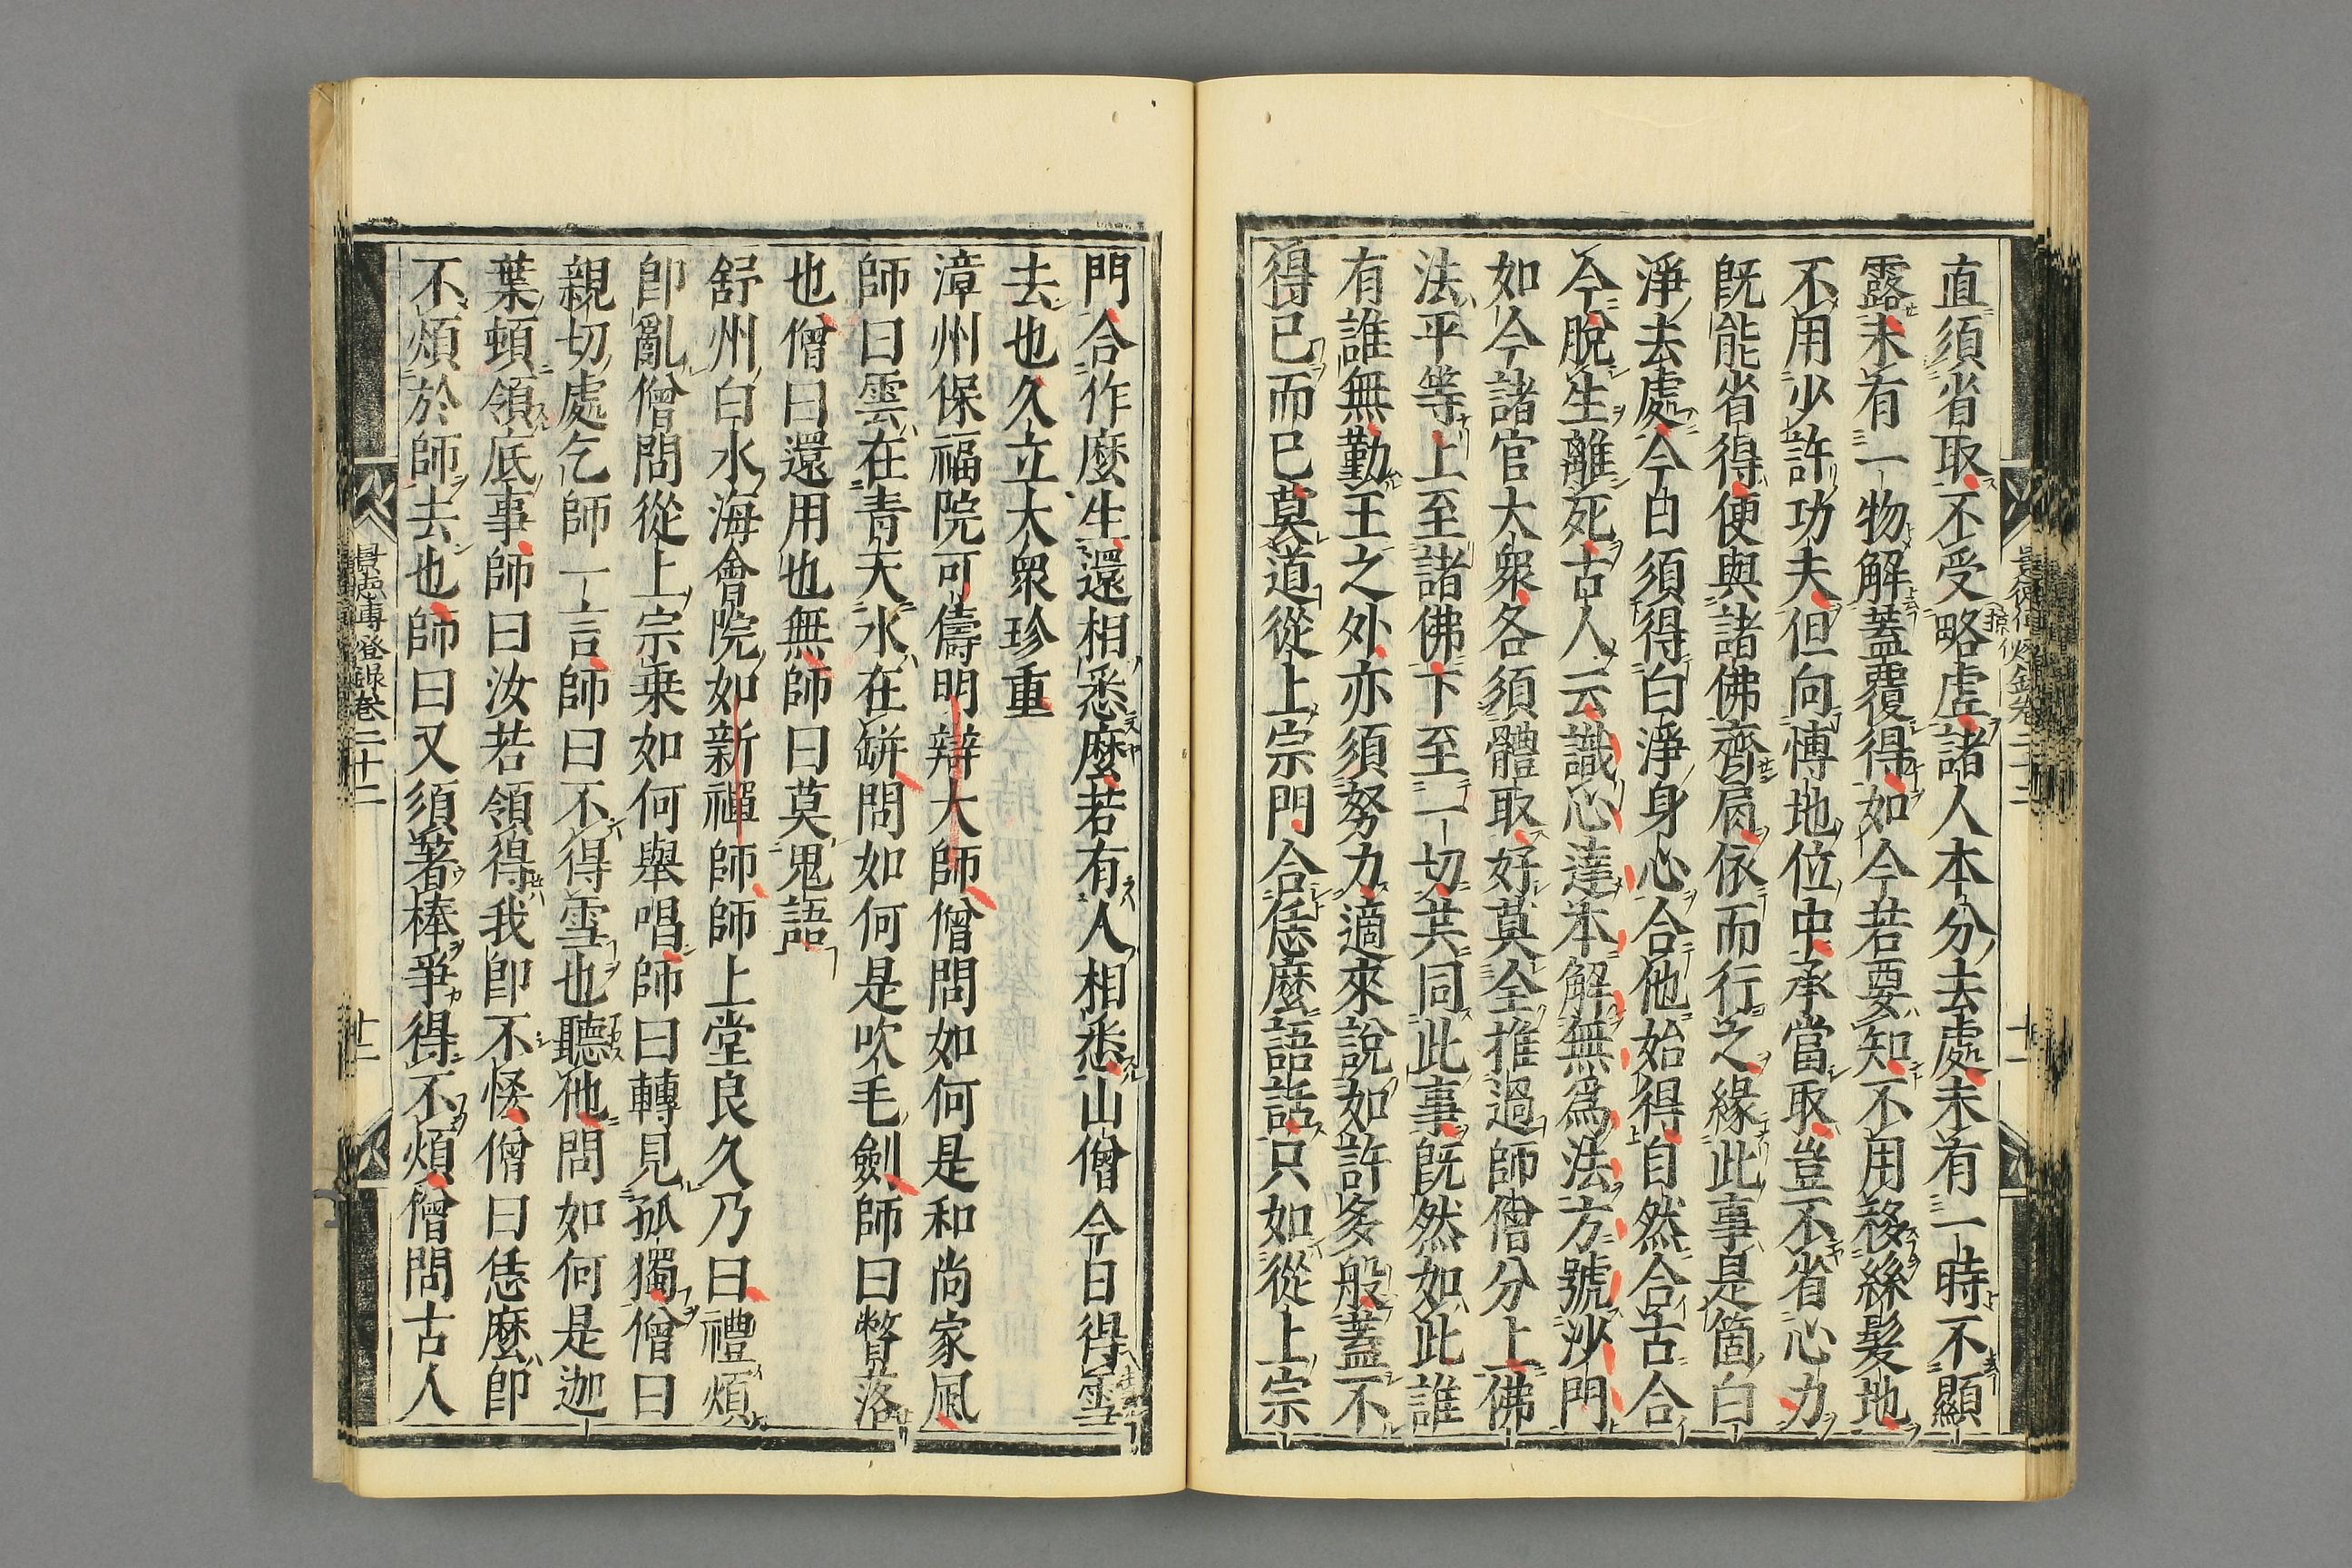 直須省取不受略虛諸人本分去處未有一時不顯
露未有一物解蓋覆得如今若要知不用移絲髮地
不用少許功夫但向博地位中承當取豈不省心力
既能省得便與諸佛齊肩依而行之緣此事是箇白
淨去處今日須得白淨身心合他始得自然合古合
今脫生離死古人云識心達本解無爲法方號沙門
如今諸官大衆各須體取好莫全推過師僧分上佛
法平等上至諸佛下至一切共同此事既然如此誰
有誰無勤王之外亦須努力適來說如許多般蓋不
得已而已莫道從上宗門合恁麼語話只如從上宗
門合作麼生還相悉麼若有人相悉山僧今日得雪
去也久立大衆珍重
漳州保福院可儔明辯大師僧問如何是和尚家風
師曰雲在青天水在缾問如何是吹毛劍師曰瞥落
也僧曰還用也無師曰莫鬼語
舒州白水海會院如新禪師師上堂良久乃曰禮煩
卽亂僧問從上宗乘如何舉唱師曰轉見孤獨僧曰
親切處乞師一言師曰不得雪也聽他問如何是迦
葉頓領底事師曰汝若領得我卽不恡僧曰恁麼卽
不煩於師去也師曰又須著棒爭得不煩僧問古人
景德傳燈錄卷二十二
十二